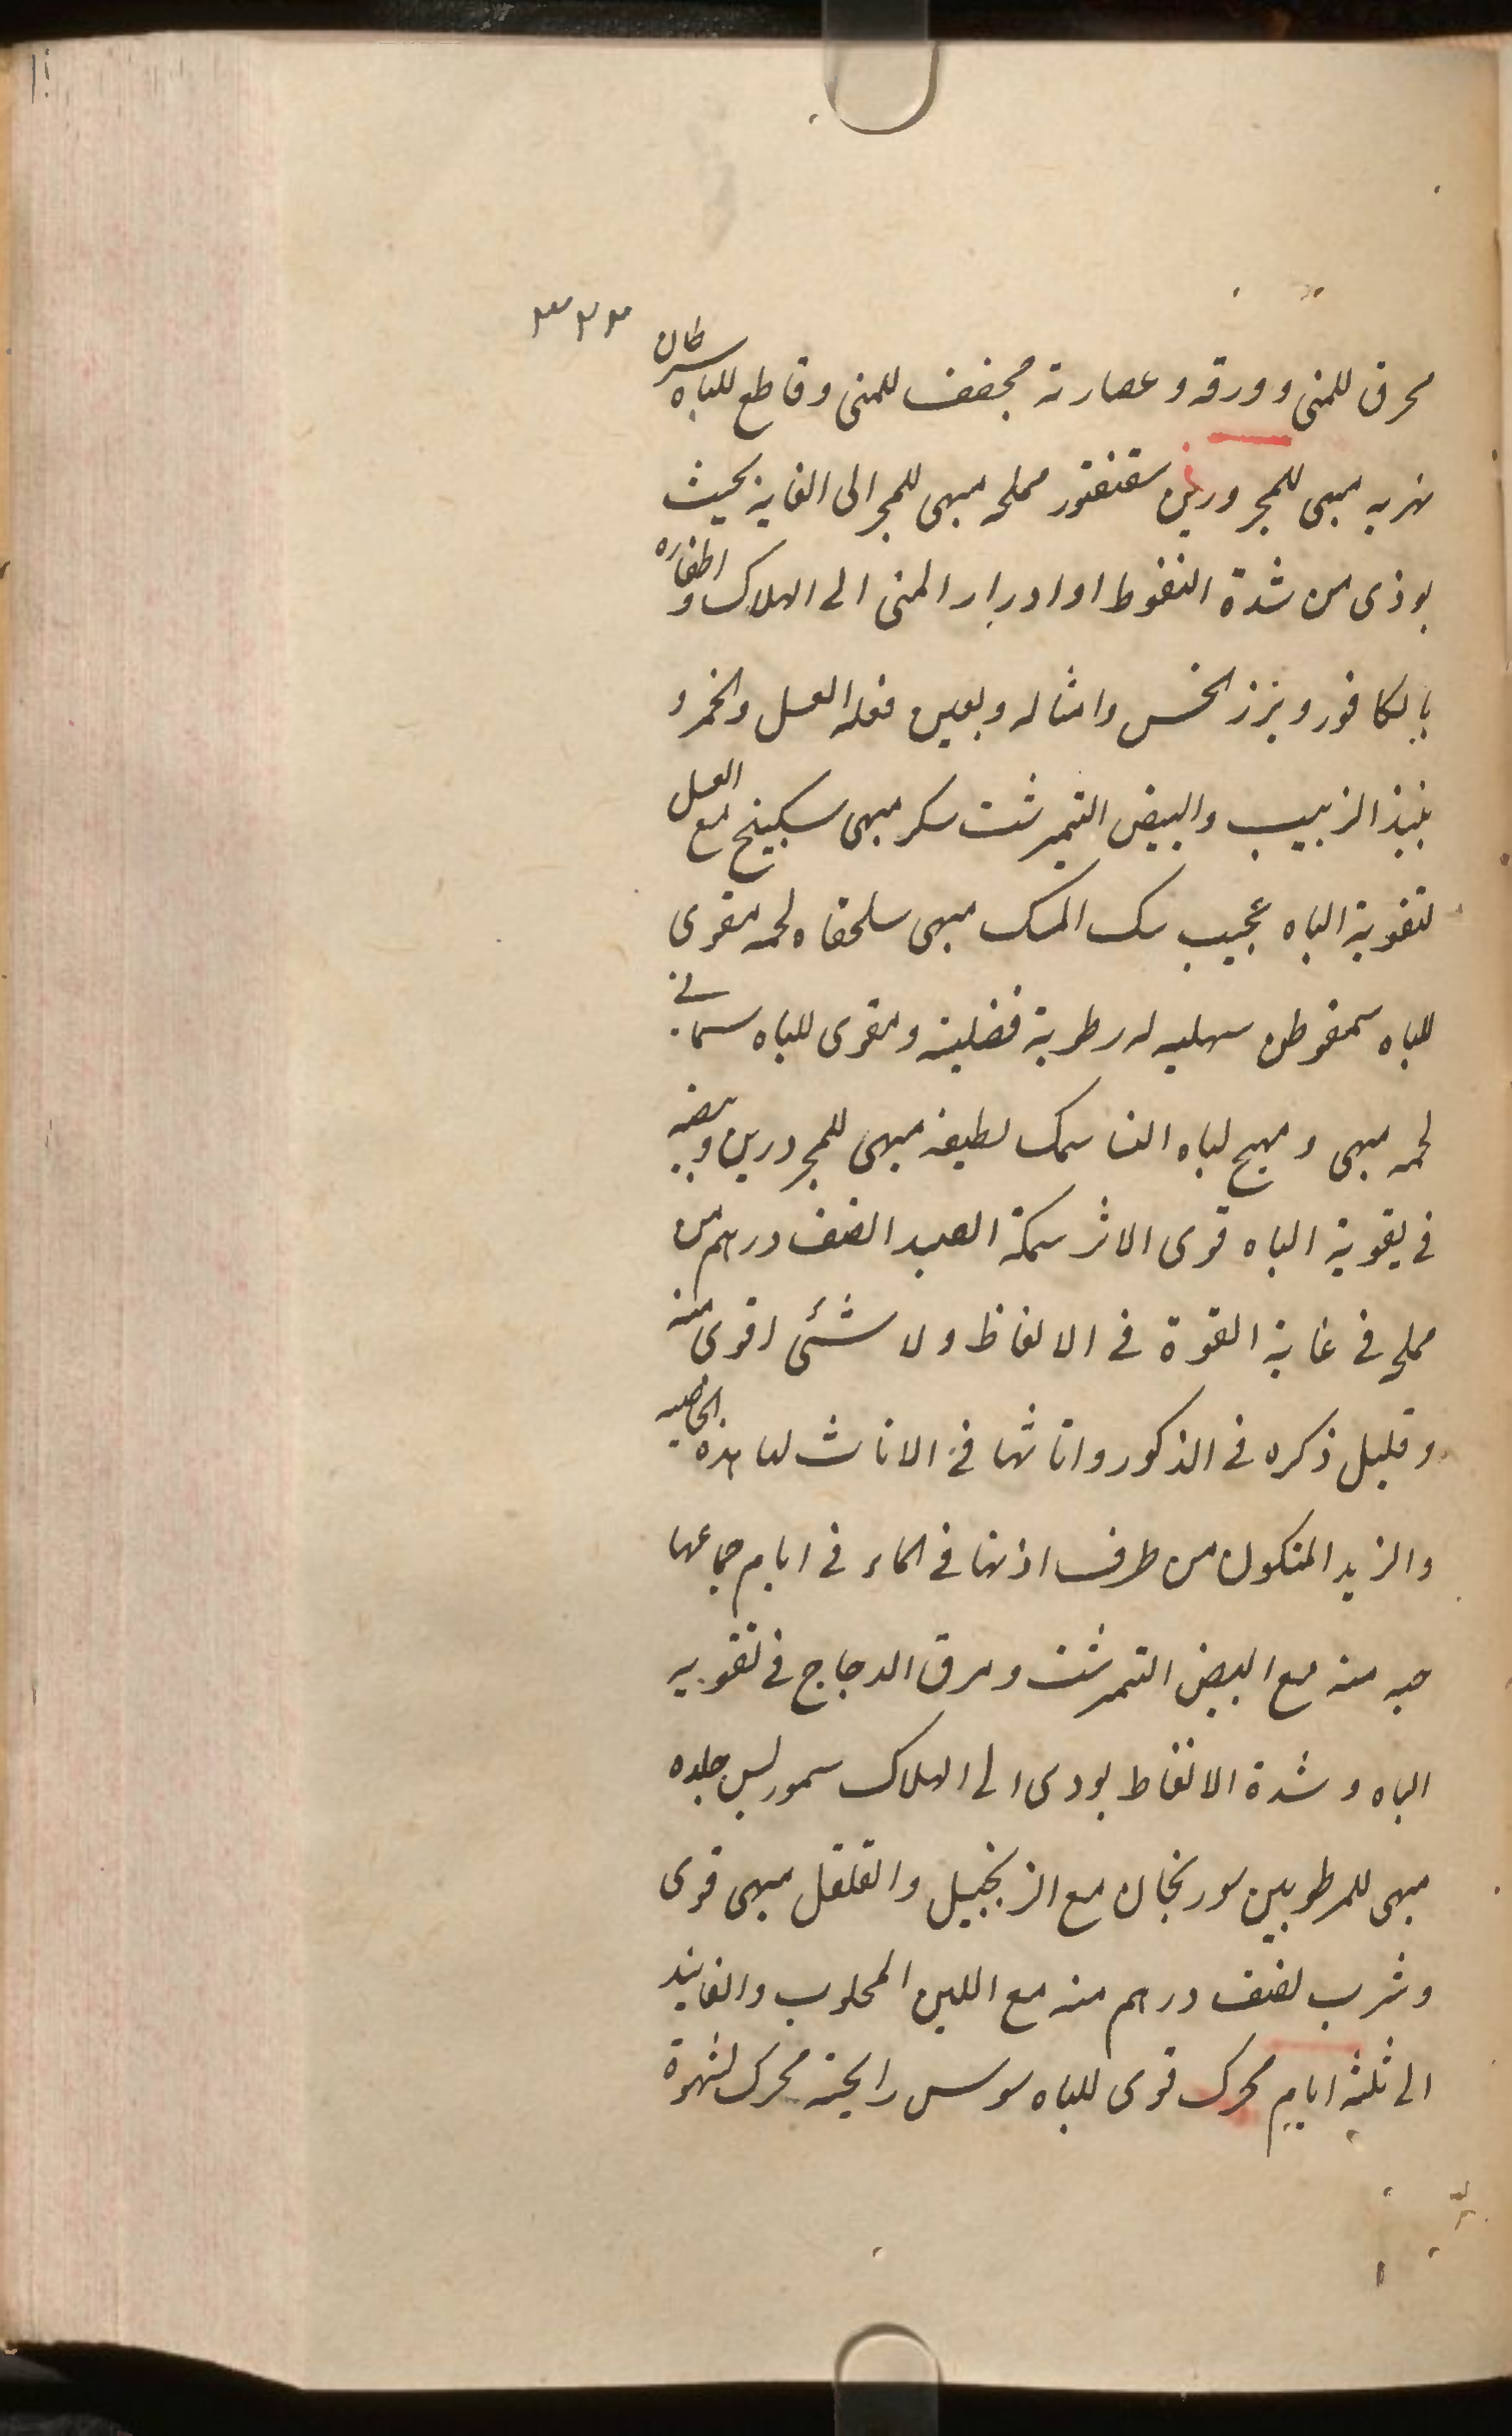 ٣٢٣
محرق للمنى وورقه وعصارته مجفف للمنى وقاطع للباه سرطان
نهريه مبهى للمجرورين سقنقور مملحه مبهى للمجر الى الغاية بحيث
يوذى من شدة النفوط او ادرار المنى الى الهلاك و اطفاره
بالكافور وبزر الخس وامثاله ويعين فعله العسل والخمر و
نبيذ الزبيب والبيض النيمرشت سكر مبهى سكبينج مع العسل
لتقوية الباه عجيب سك المسك مبهى سلحفاه لحمه مقوى
للباه سمفوطن سهليه له رطوبة فضلية ومقوى للباه سمانى
لحمه مبهى ومهيج لباه النا سمك لطيفه مبهى للمجرورين وبيضه
فى تقوية الباه قوى الاثر سمكة الصيد الضف درهم من
مملح فى غاية القوة فى الانفاظ ولا شئ اقوى منه
وقليل ذكره فى الذكور واناثها فى الاناث لها هذه الخاصيه
والزبد المتكون من طرف اذنها فى الماء فى ايام جماعها
حبه منه مع البيض النيمرشت ومرق الدجاج فى تقويه
الباه وشدة الانفاط يودى الى الهلاك سمور لبس جلده
مبهى للمرطوبين سورنجان مع الزنجبيل والفلفل مبهى قوى
وشرب نصف درهم منه مع اللبن المحلوب والفانيد
الى ثلثة ايام محرك قوى للباه سوسن رايحته محرك لشهوة